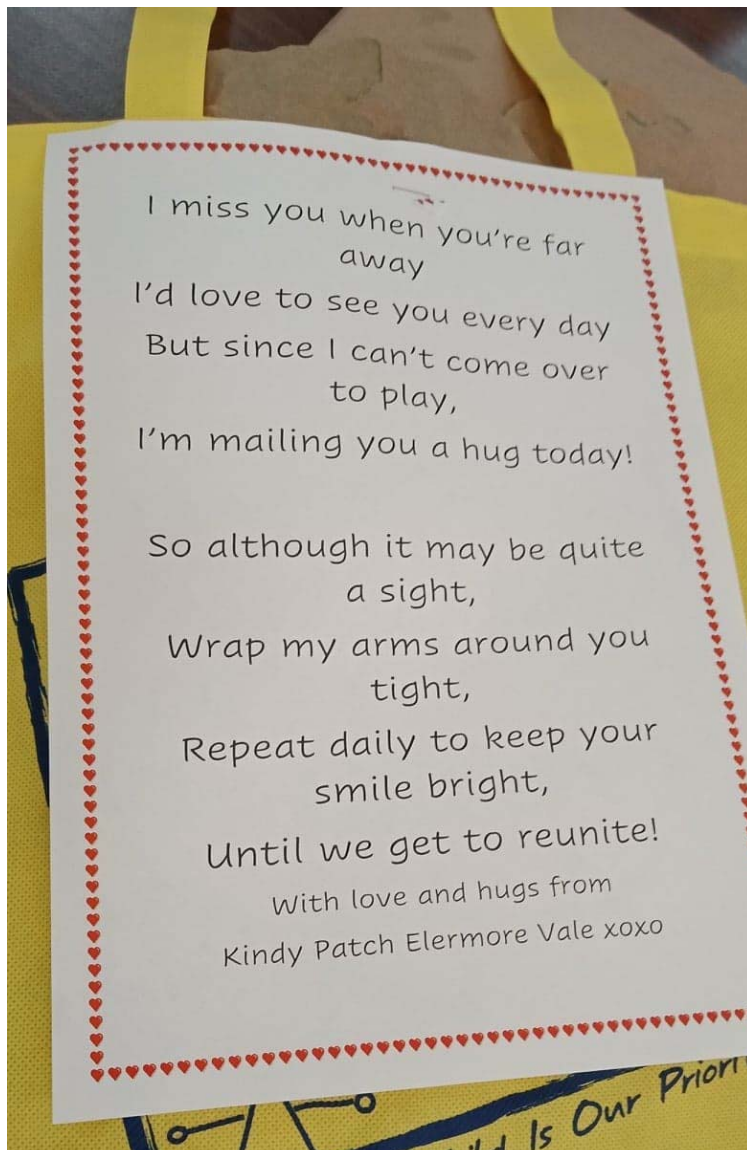 I miss you when you're far
away
I'd love to see you every day
But since I can't come over
to play,
I'm mailing you a hug today!
So although it may be quite
a sight,
Wrap my arms around you
tight,
Repeat daily to keep your
smile bright,
Until we get to reunite!
With love and hugs from
Kindy Patch Elermore Vale xoxo
Is Our